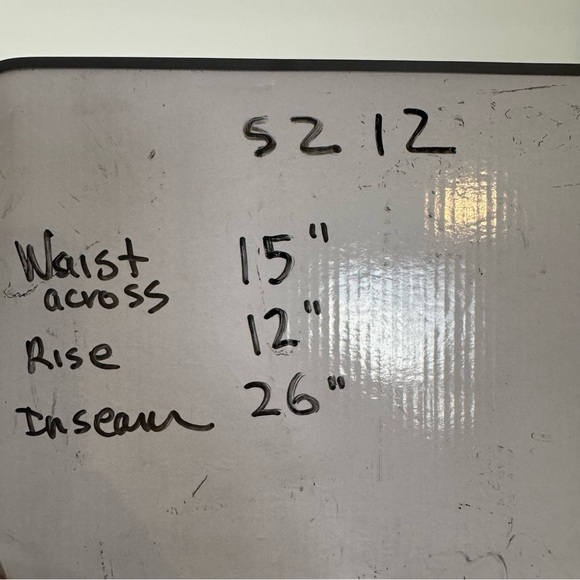 SZ 12
Waist across 15"
Rise 12"
Inseam 26"